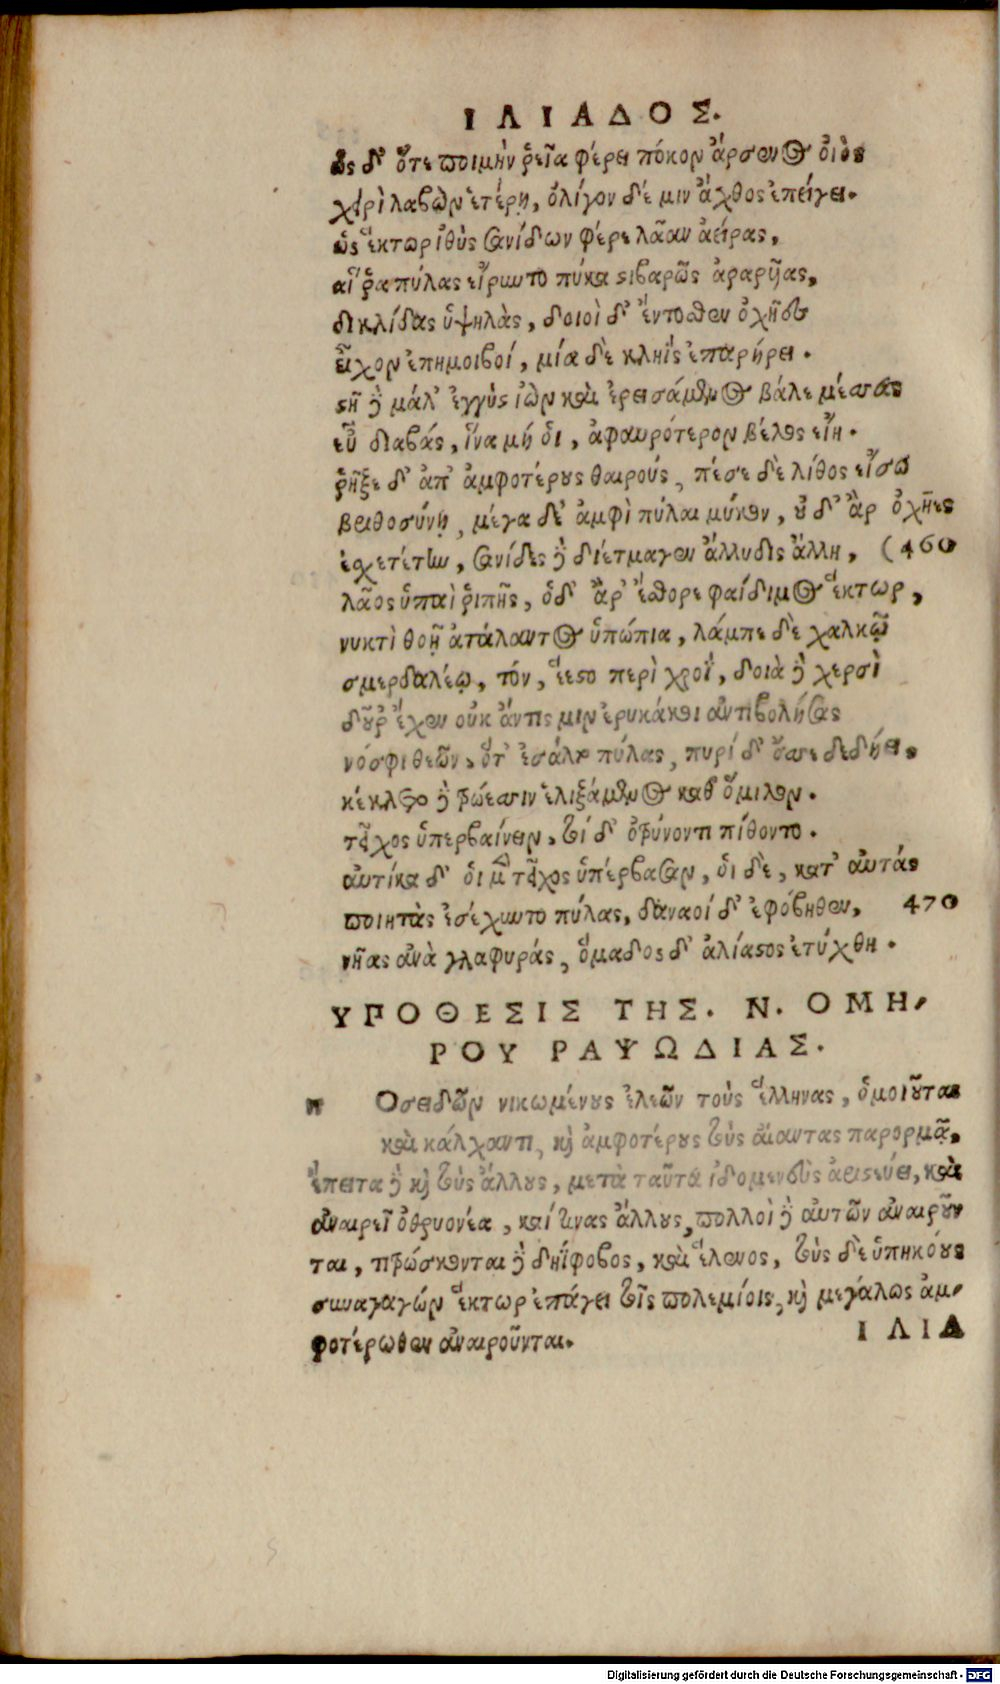 ΙΛΙΑΔΟΣ.
ὡς δ' ὅτε ποιμὴν ῥεῖα φέρει πόκον ἄρσενος οἰὸς
χειρὶ λαβὼν ἑτέρῃ, ὀλίγον δέ μιν ἄχθος ἐπείγει.
ὣς ἕκτωρ ἰθὺς σανίδων φέρε λᾶαν ἀείρας,
αἵ ῥα πύλας εἴρυντο πύκα στιβαρῶς ἀραρῦιας,
δικλίδας ὑψηλὰς, δοιοὶ δ' ἔντοσθεν ὀχῆες
εἶχον ἐπημοιβοί, μία δὲ κληῒς ἐπαρήρει.
στῆ δὲ μάλ' ἐγγὺς ἰὼν καὶ ἐρεισάμενος βάλε μέσσας
εὖ διαβάς, ἵνα μή ὁι, ἀφαυρότερον βέλος εἴη.
ῥῆξε δ' ἀπ' ἀμφοτέρους θαιρούς, πέσε δὲ λίθος εἴσω
βριθοσύνῃ, μέγα δ' ἀμφὶ πύλαι μύκον, οὐ δ' ἂρ ὀχῆες
ἐσχετέτην, σανίδες δὲ διέτμαγεν ἄλλυδις ἄλλη, (460
λᾶος ὑπαὶ ῥιπῆς, ὁδ' ἂρ' ἔσθορε φαίδιμος ἕκτωρ,
νυκτὶ θοῇ ἀτάλαντος ὑπώπια, λάμπε δὲ χαλκῷ
σμερδαλέῳ, τόν, ἕεστο περὶ χροῒ, δοιὰ δὲ χερσὶ
δοῦρ' ἔχεν οὐκ ἄντις μιν ἐρυκάκοι ἀντιβολήσας
νόσφι θεῶν, ὅτ' ἐσάλτο πύλας, πυρί δ' ὄσσε δεδήει,
κέκλετο δὲ τρώεσσιν ἑλιξάμενος καθ' ὅμιλον.
τεῖχος ὑπερβαίνειν, τοί δ' ὀτρύνοντι πίθοντο.
αὐτίκα δ' ὁι μὲν τεῖχος ὑπέρβασαν, ὁι δὲ, κατ' αὐτάς
ποιητὰς ἐσέχυντο πύλας, δαναοί δ' ἐφόβηθεν, 470
νῆας ἀνὰ γλαφυράς, ὅμαδος δ' ἀλίαστος ἐτύχθη.
ΥΠΟΘΕΣΙΣ ΤΗΣ. Ν. ΟΜΗ,
ΡΟΥ ΡΑΨΩΔΙΑΣ.
π Οσειδῶν νικωμένους ἐλεῶν τοὺς ἕλληνας, ὁμοιοῦται
καὶ κάλχαντι, καὶ ἀμφοτέρους τοὺς αἴαντας παρορμᾷ,
ἔπειτα δὲ καὶ τοὺς ἄλλους, μετὰ ταῦτα ἰδομενεὺς ἀριστεύει, καὶ
ἀναιρεῖ ὀθρυονέα, καί τινας ἄλλους, πολλοὶ δὲ αὐτῶν ἀναιροῦν
ται, τιτρώσκονται δὲ δηΐφοβος, καὶ ἕλενος, τοὺς δὲ ὑπηκόους
συναγαγών ἕκτωρ ἐπάγει τοῖς πολεμίοις, καὶ μεγάλως ἀμ,
φοτέρωθεν ἀναιροῦνται.
ΙΛΙΑ
Digitalisierung gefördert durch die Deutsche Forschungsgemeinschaft - DFG